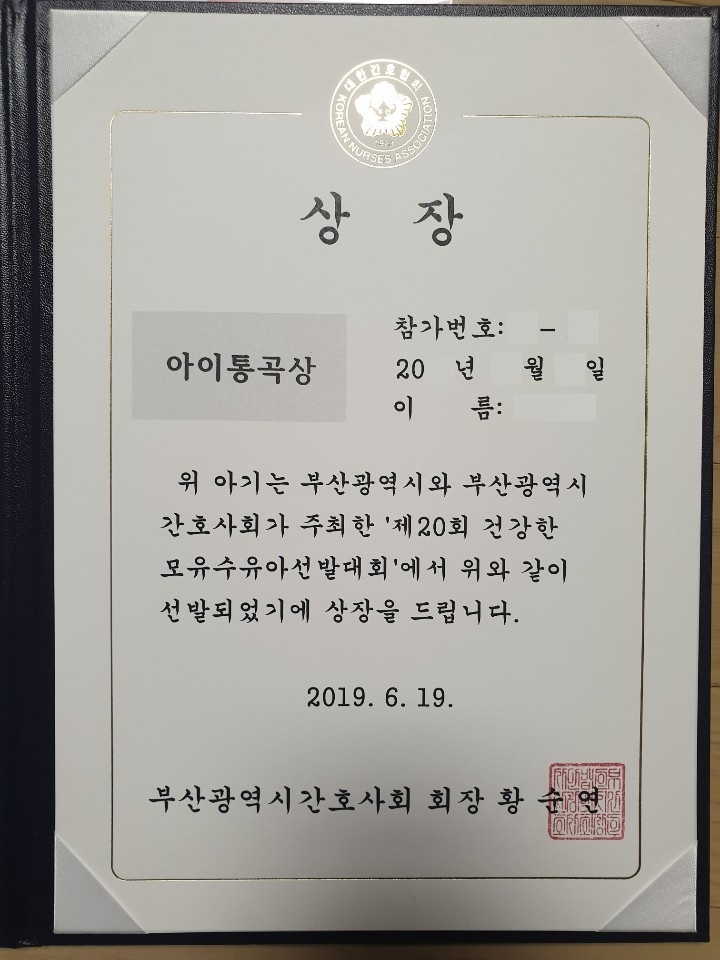 대한간호협회
KOREAN NURSES ASSOCIATION
1923
상 장
아이통곡상
참가번호: -
20 년 월 일
이 름:
위 아기는 부산광역시와 부산광역시
간호사회가 주최한 '제20회 건강한
모유수유아선발대회'에서 위와 같이
선발되었기에 상장을 드립니다.
2019. 6. 19.
부산광역시간호사회 회장 황 순 연